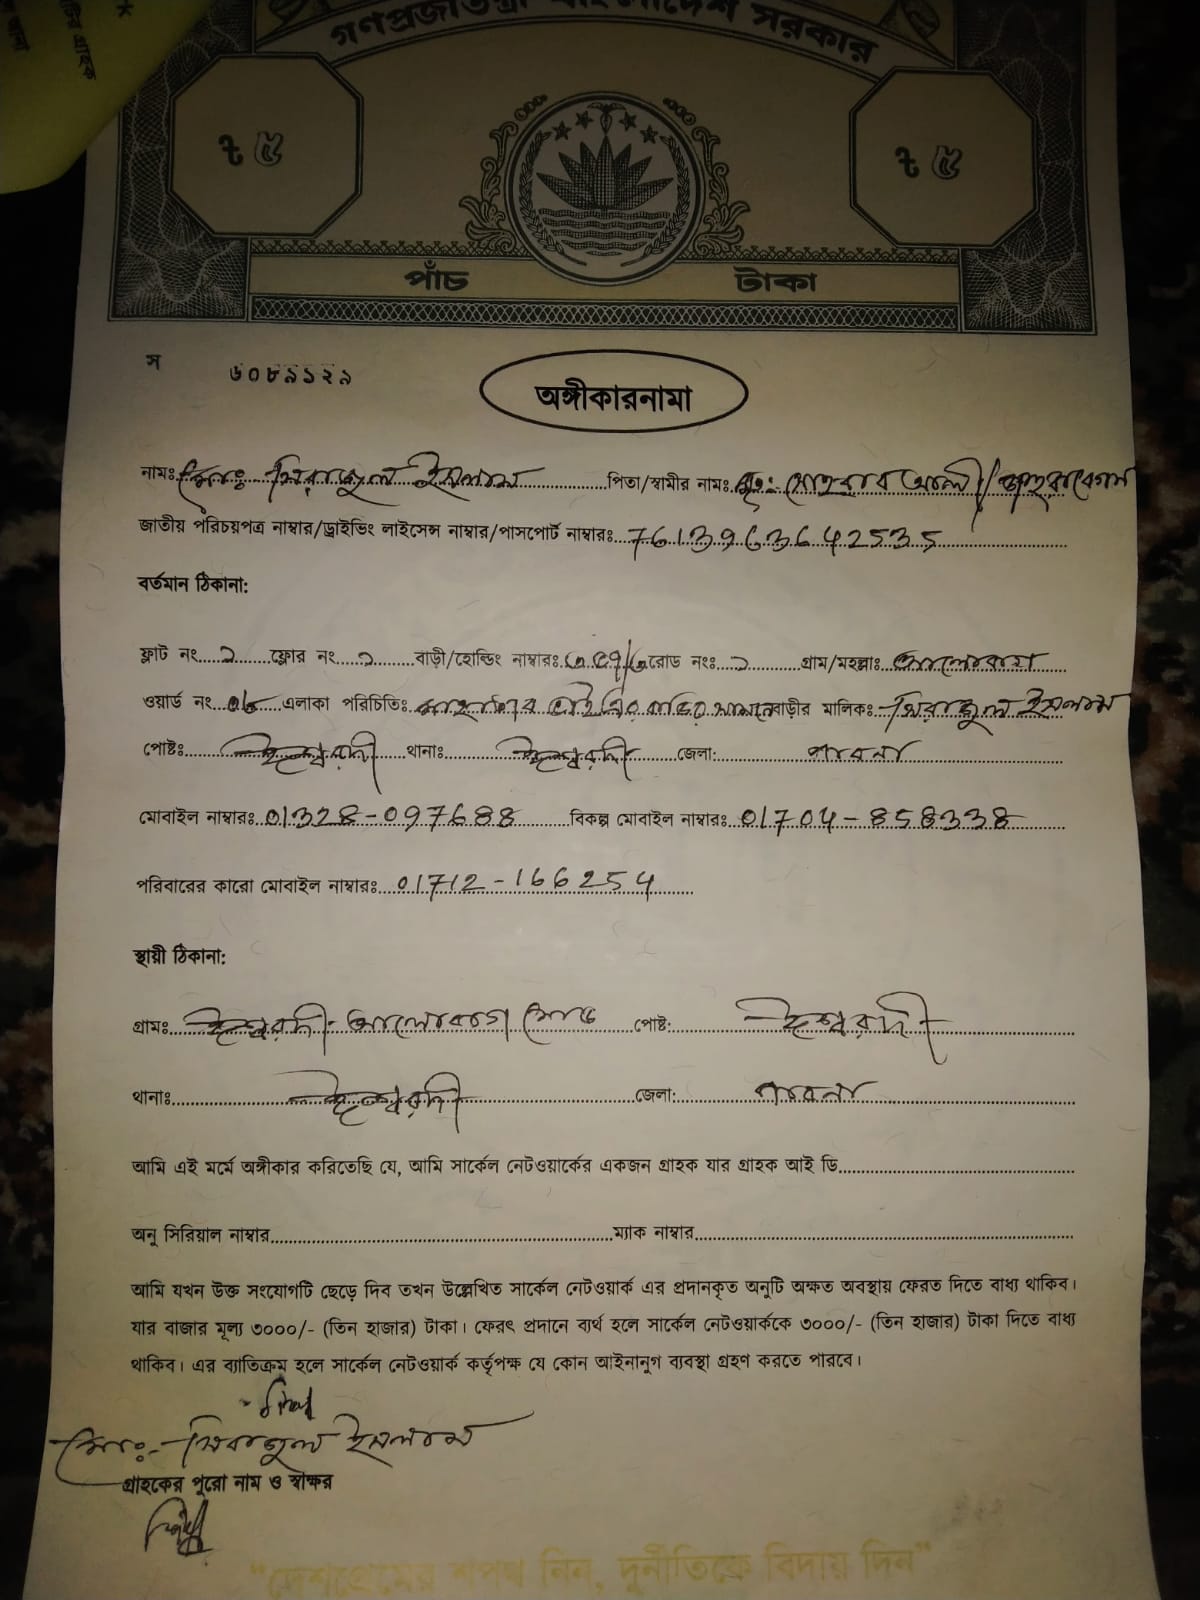 গণপ্রজাতন্ত্রী বাংলাদেশ সরকার
৳ ৫ ৳ ৫
পাঁচ টাকা
স ৬০৮৯১২৯
অঙ্গীকারনামা
নামঃ মোঃ সিরাজুল ইসলাম পিতা/স্বামীর নামঃ মৃঃ সোহরাব আলী/জহুরা বেগম
জাতীয় পরিচয়পত্র নাম্বার/ড্রাইভিং লাইসেন্স নাম্বার/পাসপোর্ট নাম্বারঃ 7613963642535
বর্তমান ঠিকানা:
ফ্লাট নং ১ ফ্লোর নং ১ বাড়ী/হোল্ডিং নাম্বারঃ রোড নংঃ ১ গ্রাম/মহল্লাঃ আলোবাগ
ওয়ার্ড নং ০৮ এলাকা পরিচিতিঃ বাড়ির সামনে বাড়ীর মালিকঃ সিরাজুল ইসলাম
পোষ্টঃ ঈশ্বরদী থানাঃ ঈশ্বরদী জেলা: পাবনা
মোবাইল নাম্বারঃ 01328-097688 বিকল্প মোবাইল নাম্বারঃ 01704-858338
পরিবারের কারো মোবাইল নাম্বারঃ 01712-166254
স্থায়ী ঠিকানা:
গ্রামঃ ঈশ্বরদী আলোবাগ মোড় পোষ্ট: ঈশ্বরদী
থানাঃ ঈশ্বরদী জেলা: পাবনা
আমি এই মর্মে অঙ্গীকার করিতেছি যে, আমি সার্কেল নেটওয়ার্কের একজন গ্রাহক যার গ্রাহক আই ডি
অনু সিরিয়াল নাম্বার ম্যাক নাম্বার
আমি যখন উক্ত সংযোগটি ছেড়ে দিব তখন উল্লেখিত সার্কেল নেটওয়ার্ক এর প্রদানকৃত অনুটি অক্ষত অবস্থায় ফেরত দিতে বাধ্য থাকিব।
যার বাজার মূল্য ৩০০০/- (তিন হাজার) টাকা। ফেরৎ প্রদানে ব্যর্থ হলে সার্কেল নেটওয়ার্ককে ৩০০০/- (তিন হাজার) টাকা দিতে বাধ্য
থাকিব। এর ব্যাতিক্রম হলে সার্কেল নেটওয়ার্ক কর্তৃপক্ষ যে কোন আইনানুগ ব্যবস্থা গ্রহণ করতে পারবে।
মোঃ সিরাজুল ইসলাম
গ্রাহকের পুরো নাম ও স্বাক্ষর
"দেশপ্রেমের শপথ নিন, দুর্নীতিকে বিদায় দিন"